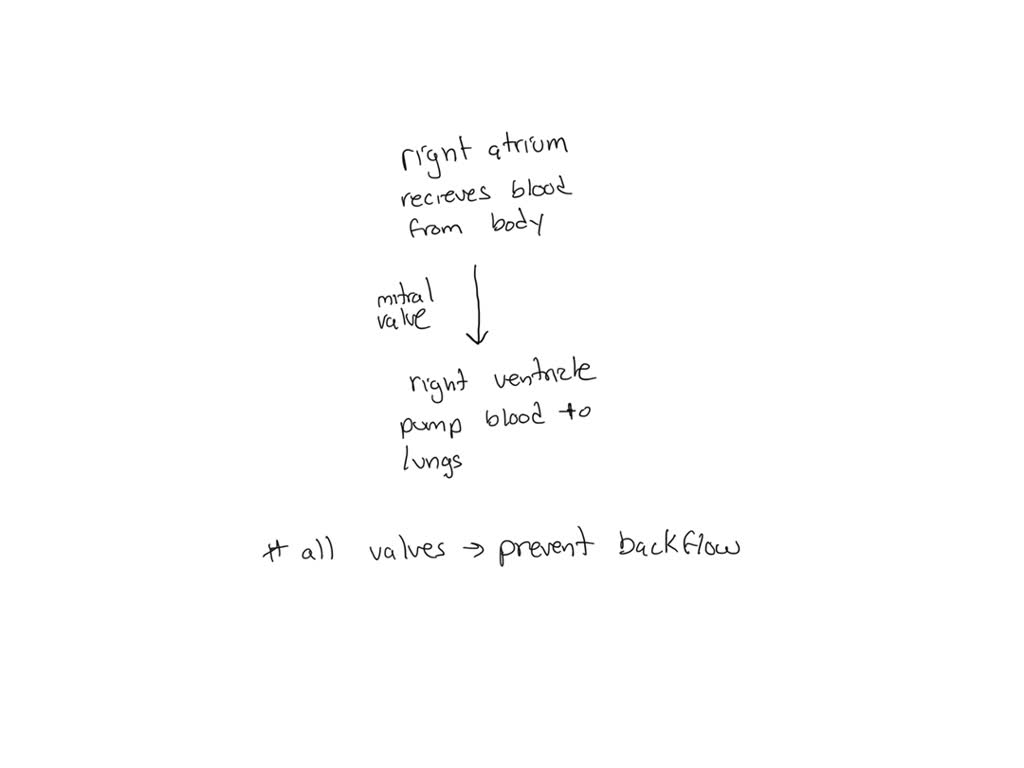 right atrium
recieves blood
from body
mitral
valve
right ventricle
pump blood to
lungs
* all valves → prevent backflow